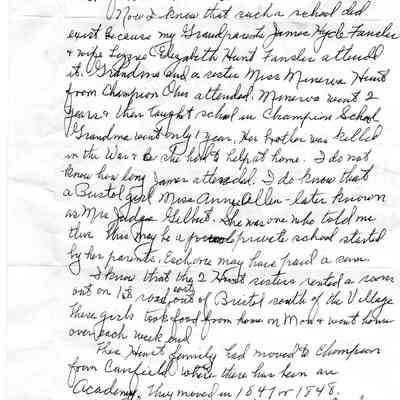 Now I know that such a school did
exist because my Grandparents James Hyde Fansler
& wife Lizzie (Elizabeth Hunt Fansler attended
it. Grandma and a sister Miss Minerva Hunt
from Champion Ohio attended. Minerva went 2
years & then taught school in Champion School
Grandma went only 1 year. Her brother was killed
in the War & so she had to help at home. I do not
know how long James attended. I do know that
a Bristol girl Miss Anne Allen - later known
as Mrs Judge Gilbert. She was one who told me
this may be a private school started
by her parents. Each one may have paid a sum.
I know that the 2 Hunt sisters rented a room
out on 1st road west out of Bristol south of the Village
These girls took food from home on Mon & went home
over each week end
This Hunt family had moved to Champion
from Canfield where there has been an
Academy. They moved in 1847 or 1848.